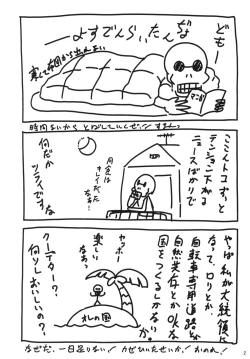 どもー
なぜ
たいらんでずよー
寒くて布団から出れない
マンガ
時間ないから とばしていくぜ!! すまんっ
ここんトコずっと
テンション下がる
ニュースばかりで
何だか
ツライですな
月食は
きれいだった
なぁ…
やっぱ私が大統領に
なって、ロリとか
自転車専用道路とか
自然共存とかOKな
国をつくるしかないか。
ヤッホー
楽しい
なぁ
オレの国
クーデター!?
何ソレおいしいの?
なぜだ、一日足りない! カゼひいたせいか! おのれ!